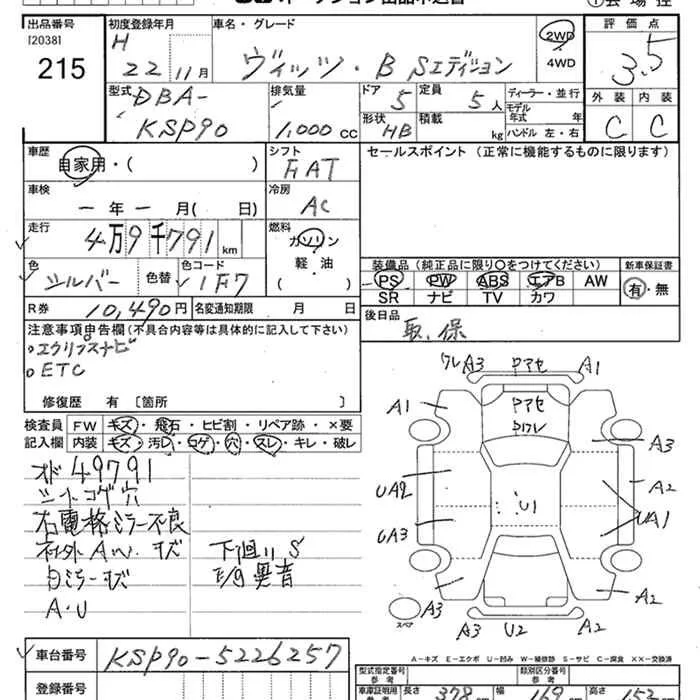 出品番号 初度登録年月 車名・グレード 評価点
120381
215
H 22 11月
ヴィッツ・B Sエディション
2WD
4WD
3.5
型式 排気量 ドア 定員 ディーラー・並行
DBA-
KSP90
1,000 cc
5 5人
モデル年式 年
形状 積載 ハンドル 左・右
HB kg
外装 内装
C C
車歴 シフト セールスポイント（正常に機能するものに限ります）
自家用・（ ）
FAT
車検 冷房
ー年ー月（ 日）
AC
走行 燃料
4万9千791km
ガソリン
軽・油
（ ）
色 色替 色コード
シルバー 1F7
装備品（純正品に限り○をつけてください） 新車保証書
PS PW ABS エアB AW
SR ナビ TV カワ
有・無
R券 10,490円 名変通知期限 月 日
後日品
取、保
注意事項申告欄（不具合内容等は具体的に記入して下さい）
・エクリプスナビ
・ETC
修復歴 有〔箇所 〕
検査員 FW キズ・飛石・ヒビ割・リペア跡・×要
記入欄 内装 キズ・汚レ・コゲ・穴・スレ・キレ・破レ
オド 49791
シートコゲ穴
右電格ミラー不良
A・U
ワレ A3 Pアセ A1
A1 Pアセ
PワレA3
UA2 A2
U1
UA3 UA1
A3 U2 A2 A2
スペア A3
A-キズ E-エクボ U-凹み W-補修跡 S-サビ C-腐食 XX-交換済
車台番号 KSP90-5226257
登録番号
型式指定番号 参考 類別区分番号 参考
車庫証明用 参考 長さ 378 cm 幅 169 cm 高さ 152 cm